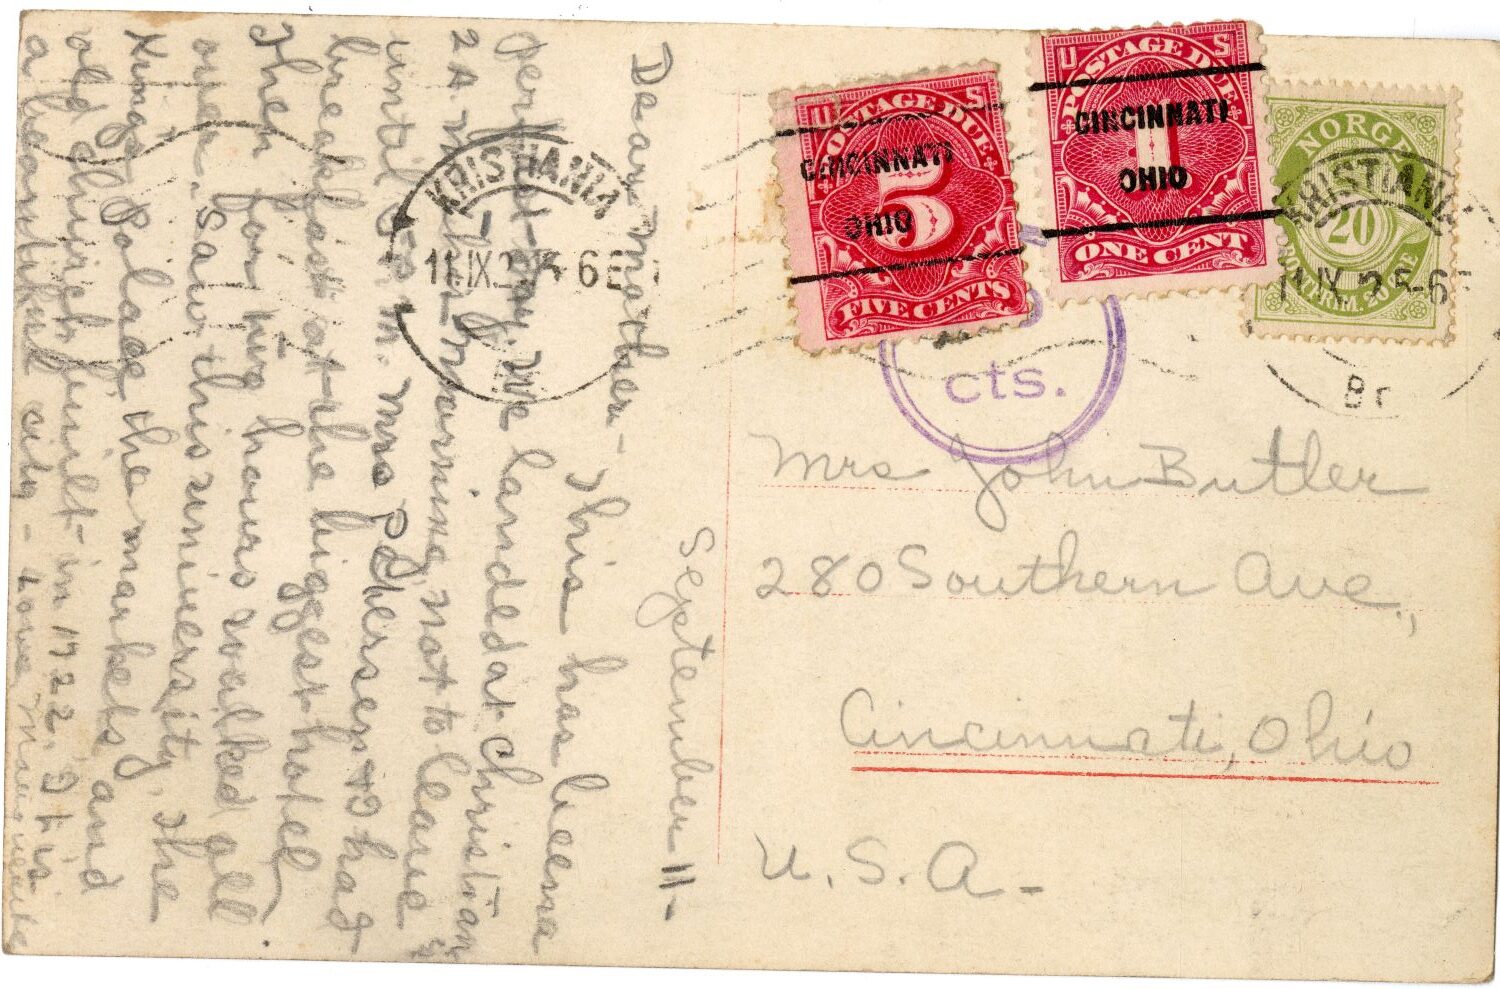 September 11-
Dear Mother- This has been a
perfect day. We landed at Christiania
2 A. M. this morning, not to leave
until 5 P.M. Mrs Petersen & I had
breakfast at the biggest hotel,
Then for two hours walked all
over. Saw this university, The
King's Palace, the markets and
old church built in 1722. It is
a beautiful city - Love,
U S
POSTAGE DUE
CINCINNATI
OHIO
5
FIVE CENTS
U S
POSTAGE DUE
CINCINNATI
1
OHIO
ONE CENT
NORGE
20
KRISTIANIA
11.IX.2 5-6E
KRISTIANIA
11.IX.2 5-6E
Br
cts.
Mrs John Butler
280 Southern Ave.,
Cincinnati, Ohio
U. S. A -